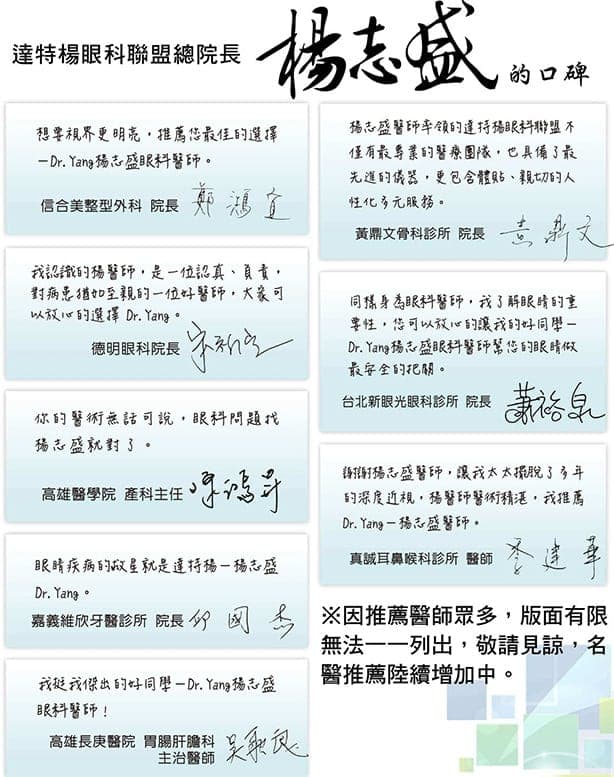 達特楊眼科聯盟總院長 楊志盛 的口碑
想要視界更明亮，推薦您最佳的選擇
－Dr.Yang楊志盛眼科醫師。
信合美整型外科 院長 鄭鴻宜
我認識的楊醫師，是一位認真、負責，
對病患猶如至親的一位好醫師，大家可
以放心的選擇 Dr.Yang。
德明眼科院長
你的醫術無話可說，眼科問題找
楊志盛就對了。
高雄醫學院 產科主任
眼睛疾病的救星就是達特楊－楊志盛
Dr.Yang。
嘉義維欣牙醫診所 院長 邱國杰
我挺我傑出的好同學－Dr.Yang楊志盛
眼科醫師！
高雄長庚醫院 胃腸肝膽科
主治醫師
楊志盛醫師率領的達特楊眼科聯盟不
僅有最專業的醫療團隊，也具備了最
先進的儀器，更包含體貼、親切的人
性化多元服務。
黃鼎文骨科診所 院長 黃鼎文
同樣身為眼科醫師，我了解眼睛的重
要性，您可以放心的讓我的好同學－
Dr.Yang楊志盛眼科醫師幫您的眼睛做
最安全的把關。
台北新眼光眼科診所 院長 蕭裕泉
謝謝楊志盛醫師，讓我太太擺脫了多年
的深度近視，楊醫師醫術精湛，我推薦
Dr.Yang－楊志盛醫師。
真誠耳鼻喉科診所 醫師 李建華
※因推薦醫師眾多，版面有限
無法一一列出，敬請見諒，名
醫推薦陸續增加中。